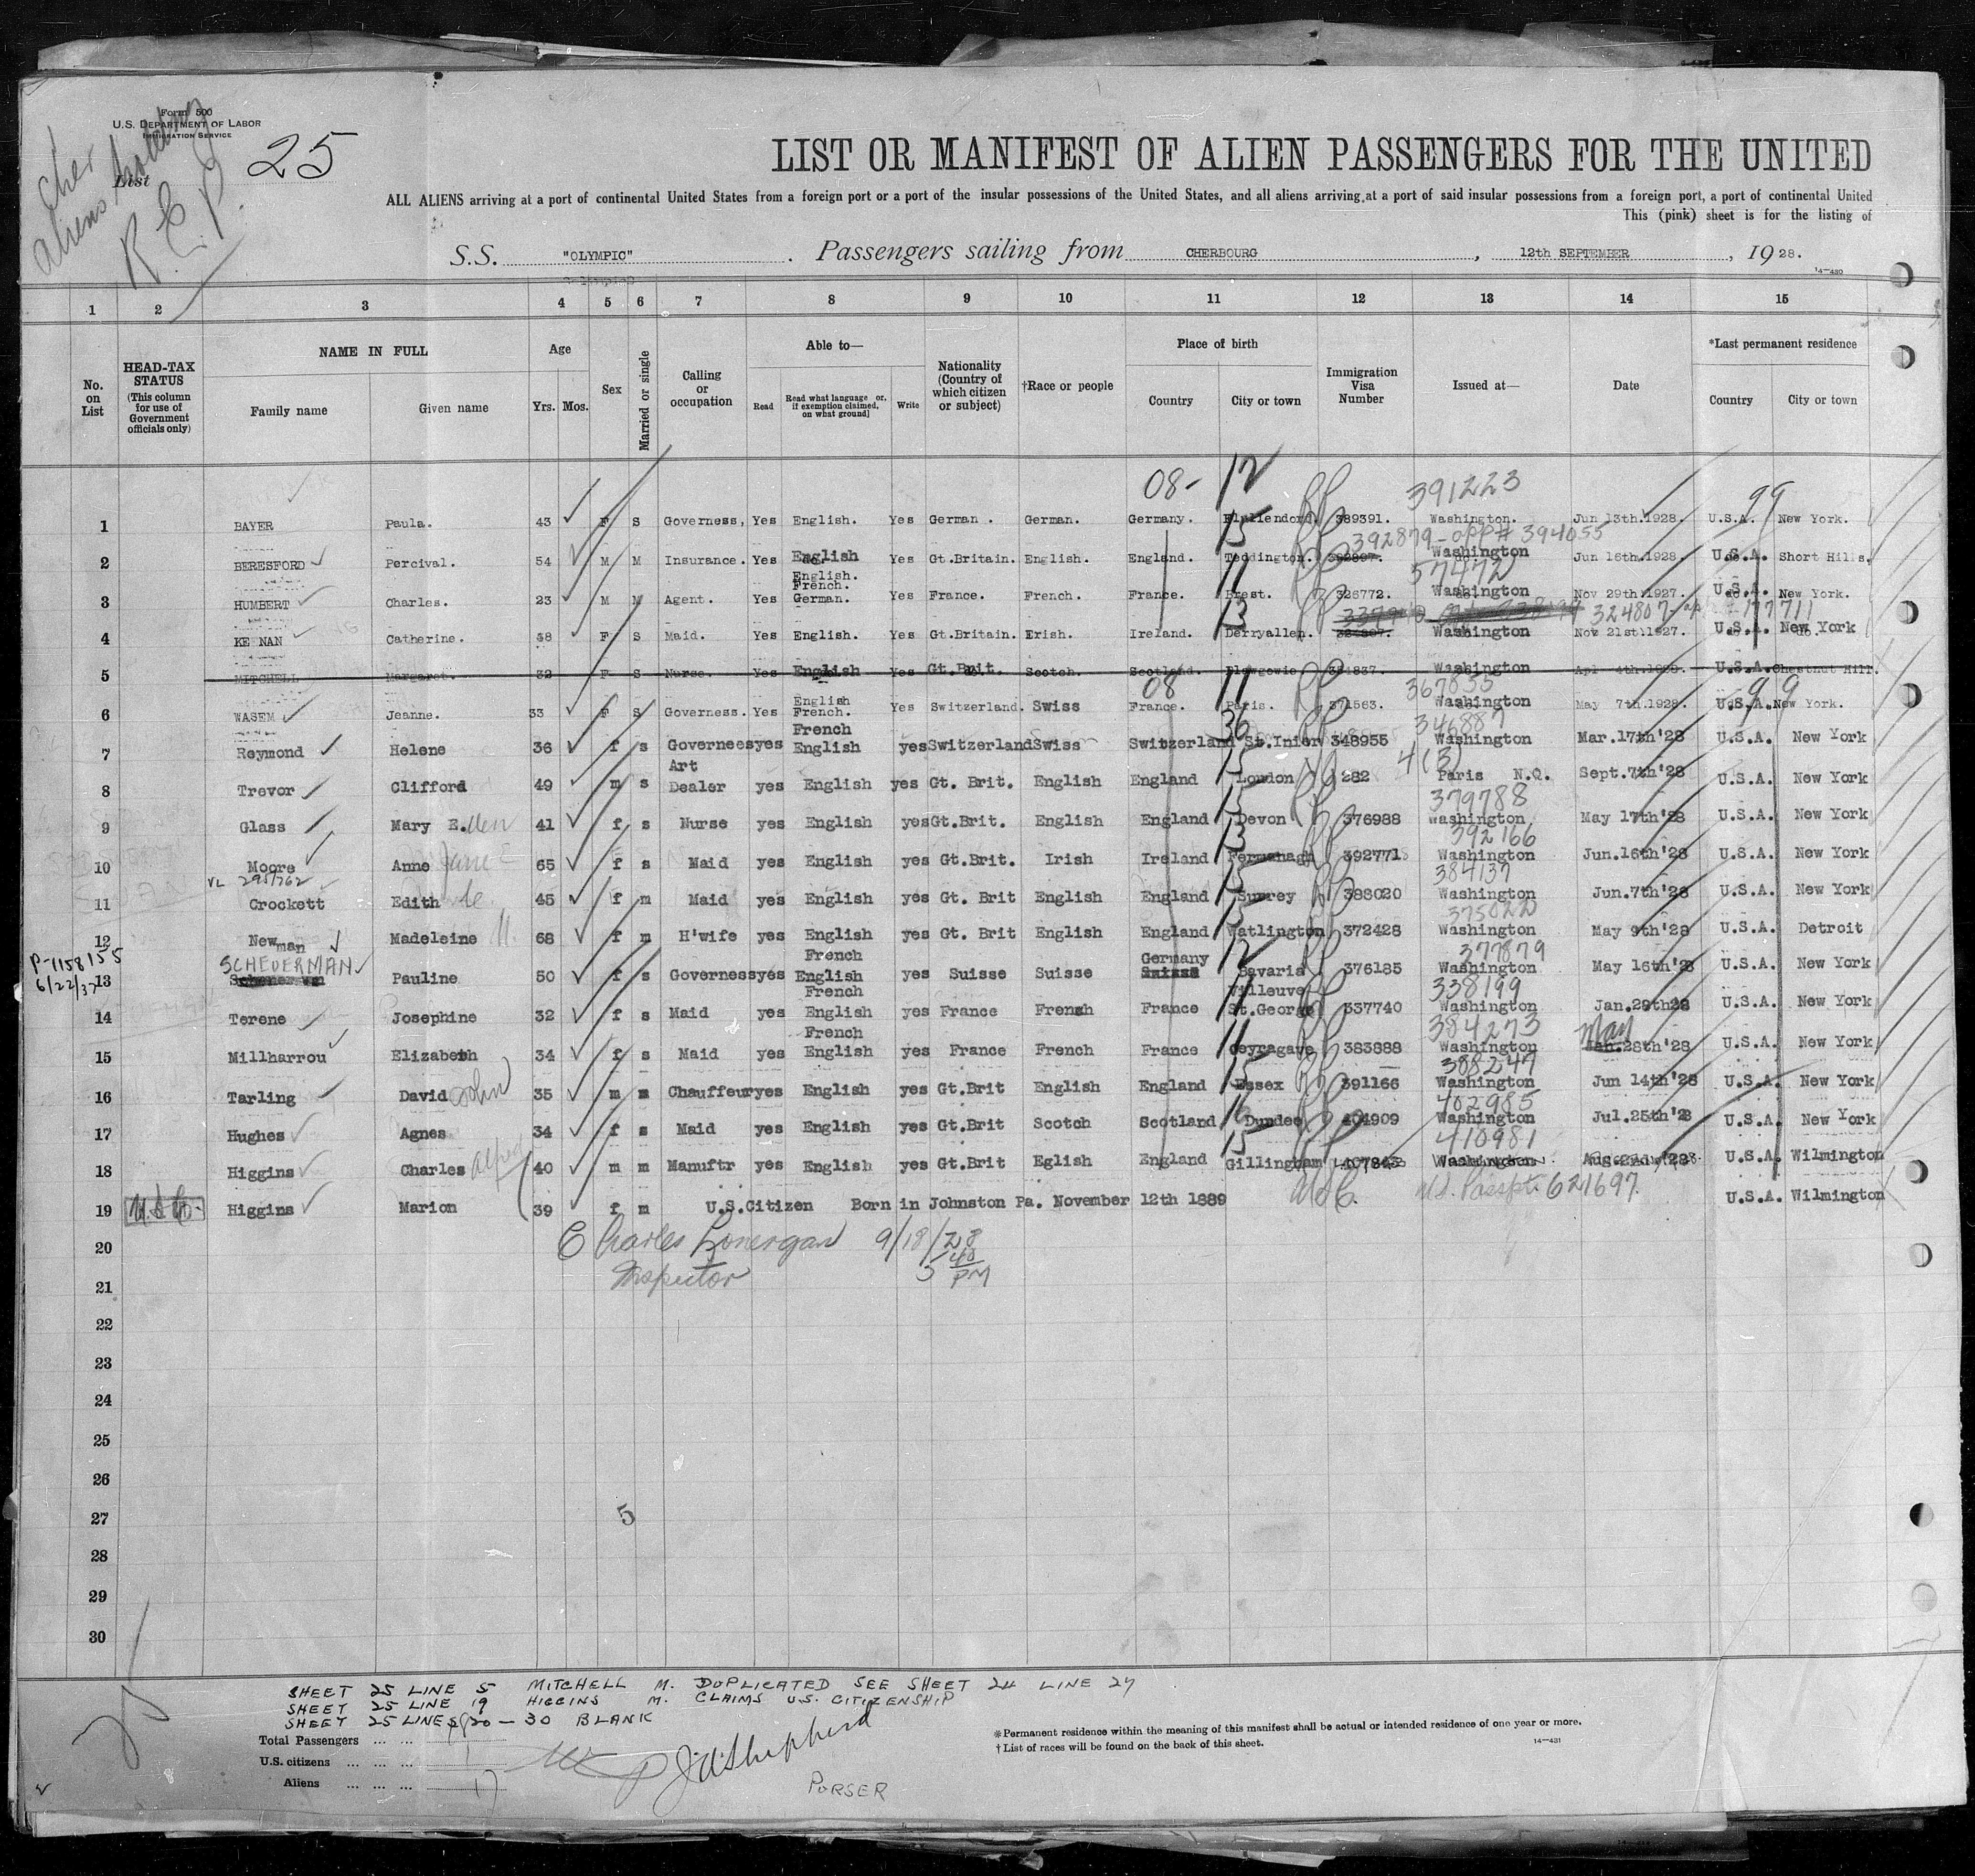 Form 500
U.S. DEPARTMENT OF LABOR
IMMIGRATION SERVICE
Cher
aliens
R.E.P.
List 25
LIST OR MANIFEST OF ALIEN PASSENGERS FOR THE UNITED
ALL ALIENS arriving at a port of continental United States from a foreign port or a port of the insular possessions of the United States, and all aliens arriving at a port of said insular possessions from a foreign port, a port of continental United
This (pink) sheet is for the listing of
S.S. "OLYMPIC". Passengers sailing from CHERBOURG, 12th SEPTEMBER, 1928.
14—430
1 2 3 4 5 6 7 8 9 10 11 12 13 14 15
No. on List
HEAD-TAX STATUS (This column for use of Government officials only)
NAME IN FULL
Family name Given name
Age
Yrs. Mos.
Sex
Married or single
Calling or occupation
Able to—
Read Read what language or, if exemption claimed, on what ground] Write
Nationality (Country of which citizen or subject)
†Race or people
Place of birth
Country City or town
Immigration Visa Number
Issued at—
Date
*Last permanent residence
Country City or town
08- 12 391223 99
1 BAYER Paula. 43 F S Governess, Yes English. Yes German. German. Germany. 389391. Washington. Jun 13th.1928. U.S.A. New York.
15 392879-app# 394055
2 BERESFORD Percival. 54 M M Insurance. Yes English Yes Gt.Britain. English. England. Teddington. 392897. Washington Jun 16th.1928. U.S.A. Short Hills.
English. French. 11 57472
3 HUMBERT Charles. 23 M M Agent. Yes German. Yes France. French. France. Brest. 326772. Washington Nov 29th.1927. U.S.A. New York.
13 324807 177711
4 KEENAN Catherine. 38 F S Maid. Yes English. Yes Gt.Britain. Erish. Ireland. Derryallen. Washington Nov 21st.1927. U.S.A. New York
5 MITCHELL Margaret. 32 F S Nurse. Yes English Yes Gt.Brit. Scotch. Scotland. Blowgowie 354837. Washington Apl 4th.1928. U.S.A. Chestnut Hill.
English 08 11 367835 99
6 WASEM Jeanne. 33 F S Governess. Yes French. Yes Switzerland. Swiss France. Paris. 371563. Washington May 7th.1928. U.S.A. New York.
French 36 346887
7 Reymond Helene 36 f s Governess yes English yes Switzerland Swiss Switzerland St.Inier 348955 Washington Mar.17th'28 U.S.A. New York
Art 15 4(3)
8 Trevor Clifford 49 m s Dealer yes English yes Gt. Brit. English England London 282 Paris N.Q. Sept.7th'28 U.S.A. New York
15 379788
9 Glass Mary E.llen 41 f s Nurse yes English yes Gt.Brit. English England Devon 376988 Washington May 17th'28 U.S.A. New York
13 392166
10 Moore Anne Jane 65 f s Maid yes English yes Gt.Brit. Irish Ireland Fermanagh 392771 Washington Jun.16th'28 U.S.A. New York
VL 295/762 15 384137
11 Crockett Edith 45 f m Maid yes English yes Gt. Brit English England Surrey 388020 Washington Jun.7th'28 U.S.A. New York
15 375022
12 Newman Madeleine M. 68 f m H'wife yes English yes Gt. Brit English England Watlington 372428 Washington May 9th'28 U.S.A. Detroit
P-1158155 SCHEUERMAN French Germany 12 377879
6/22/37 13 Pauline 50 f s Governess yes English yes Suisse Suisse Suisse Bavaria 376185 Washington May 16th'28 U.S.A. New York
French Villeuve 338199
14 Terene Josephine 32 f s Maid yes English yes France French France St.George 337740 Washington Jan.29th28 U.S.A. New York
French 11 384273 May
15 Millharrou Elizabeth 34 f s Maid yes English yes France French France Ceyragave 383888 Washington Jan.28th'28 U.S.A. New York
15 388247
16 Tarling David John 35 m m Chauffeur yes English yes Gt.Brit English England Essex 391166 Washington Jun 14th'28 U.S.A. New York
16 402985
17 Hughes Agnes 34 f s Maid yes English yes Gt.Brit Scotch Scotland Dundee 404909 Washington Jul.25th'28 U.S.A. New York
15 410981
18 Higgins Charles Alfred 40 m m Manuftr yes English yes Gt.Brit Eglish England Gillingham 407843 Washington Aug.22nd'28 U.S.A. Wilmington
19 Higgins Marion 39 f m U.S.Citizen Born in Johnston Pa. November 12th 1889 U.S. Passpt. 621697 U.S.A. Wilmington
20 Charles Lonergan 9/18/28
21 Inspector 5 40 PM
22
23
24
25
26
27 5
28
29
30
SHEET 25 LINE 5 MITCHELL M. DUPLICATED SEE SHEET 24 LINE 27
SHEET 25 LINE 19 HIGGINS M. CLAIMS U.S. CITIZENSHIP
SHEET 25 LINES 20 – 30 BLANK
Total Passengers ... ... 18
U.S. citizens ... ... ... 1
Aliens ... ... ... 17
J W Shepherd
PURSER
*Permanent residence within the meaning of this manifest shall be actual or intended residence of one year or more.
† List of races will be found on the back of this sheet.
14—431